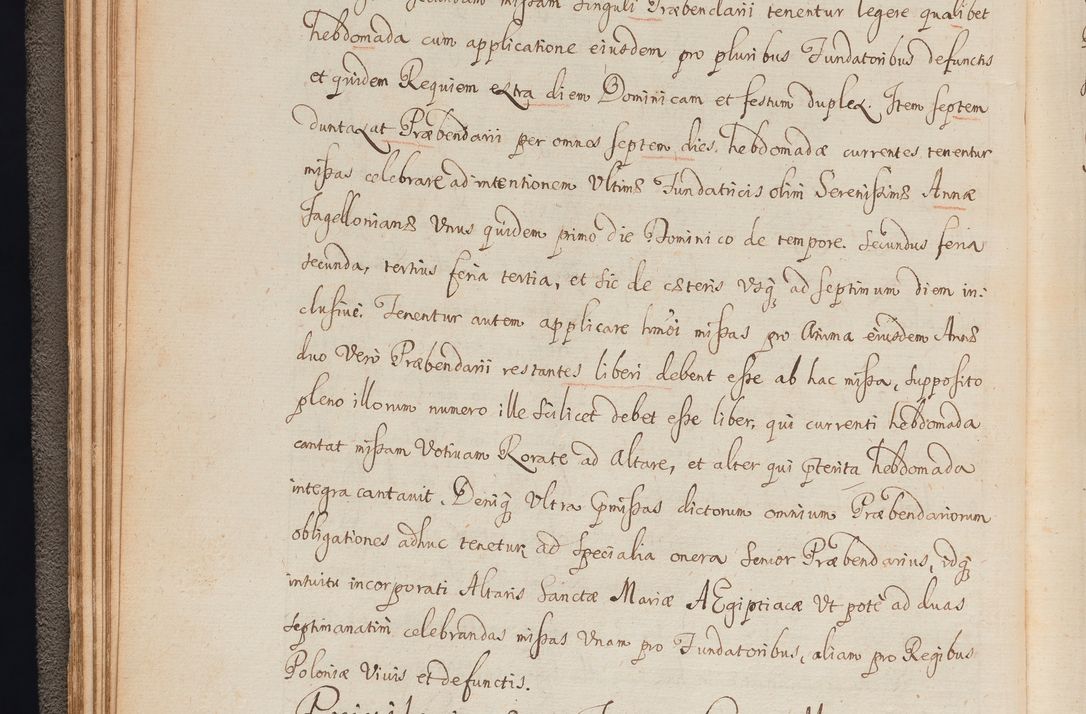 secundam missam singuli Præbendarii tenentur legere qualibet
hebdomada cum applicatione eiusdem pro pluribus Fundatoribus defunctis
et quidem Requiem extra diem Dominicam et festum duplex. Item septem
duntaxat Præbendarii per omnes septem dies hebdomadæ currentes tenentur
missas celebrare ad intentionem Ultimæ Fundatricis olim Serenissimæ Annæ
Jagellonianæ Unus quidem primo die Dominico de tempore. Secundus feria
secunda, tertius feria tertia, et sic de cæteris usq; ad septimum diem in:
clusivè. Tenentur autem applicare hmõi missas pro Anima eiusdem Annæ
duo verò Præbendarii restantes liberi debent esse ab hac missa, supposito
pleno illorum numero ille scilicet debet esse liber, qui currenti hebdomada
cantat missam Votivam Rorate ad Altare, et alter qui p̃terita hebdomada
integra cantavit. Deniq; Ultra p̃missas dictorum omnium Præbendariorum
obligationes adhuc tenetur ad specialia onera Senior Præbendarius, idq;
intuitu incorporati Altaris Sanctæ Mariæ AEgiptiacæ Ut potè ad duas
septimanatim celebrandas missas Unam pro Fundatoribus, aliam pro Regibus
Poloniæ Vivis et defunctis.